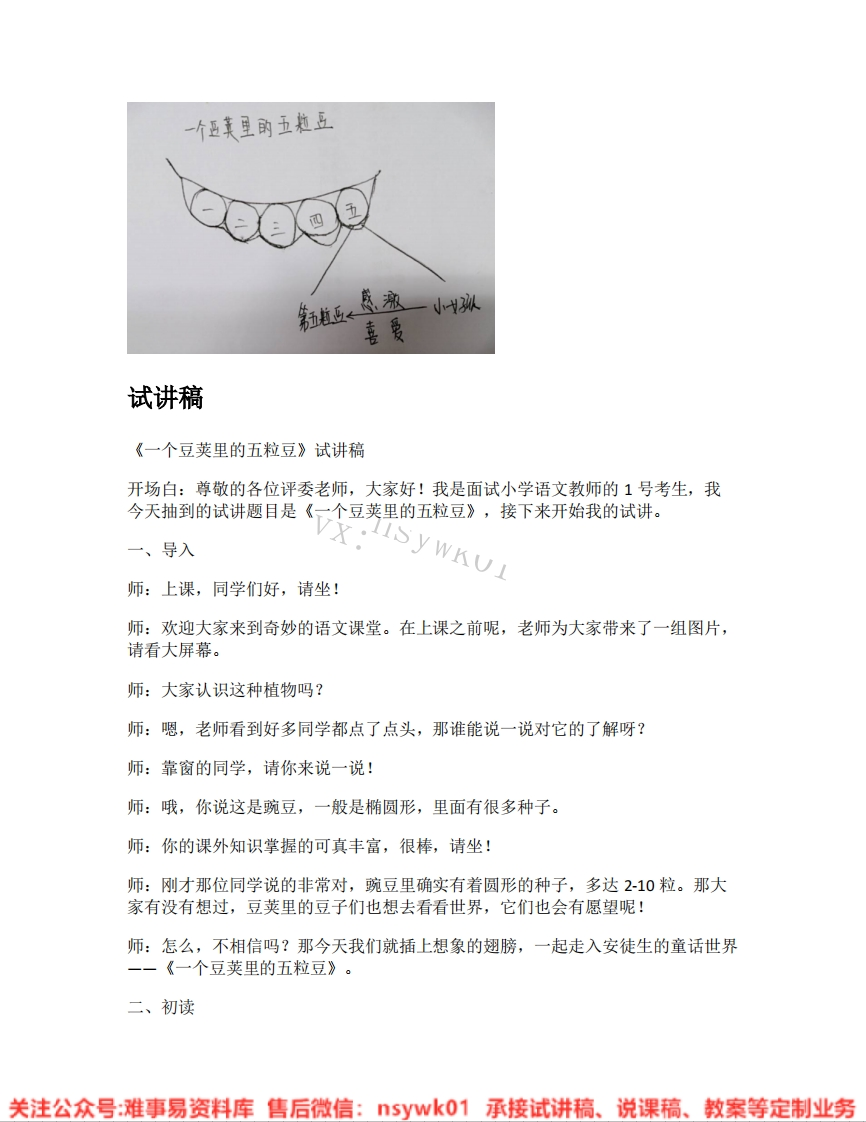 一个豆荚里的五粒豆
一 二 三 四 五
第五粒豆 感激 小女孩
喜爱
试讲稿
《一个豆荚里的五粒豆》试讲稿
开场白：尊敬的各位评委老师，大家好！我是面试小学语文教师的 1 号考生，我
今天抽到的试讲题目是《一个豆荚里的五粒豆》，接下来开始我的试讲。
VX:nsywk01
一、导入
师：上课，同学们好，请坐！
师：欢迎大家来到奇妙的语文课堂。在上课之前呢，老师为大家带来了一组图片，
请看大屏幕。
师：大家认识这种植物吗？
师：嗯，老师看到好多同学都点了点头，那谁能说一说对它的了解呀？
师：靠窗的同学，请你来说一说！
师：哦，你说这是豌豆，一般是椭圆形，里面有很多种子。
师：你的课外知识掌握的可真丰富，很棒，请坐！
师：刚才那位同学说的非常对，豌豆里确实有着圆形的种子，多达 2-10 粒。那大
家有没有想过，豆荚里的豆子们也想去看看世界，它们也会有愿望呢！
师：怎么，不相信吗？那今天我们就插上想象的翅膀，一起走入安徒生的童话世界
——《一个豆荚里的五粒豆》。
二、初读
关注公众号:难事易资料库 售后微信：nsywk01 承接试讲稿、说课稿、教案等定制业务